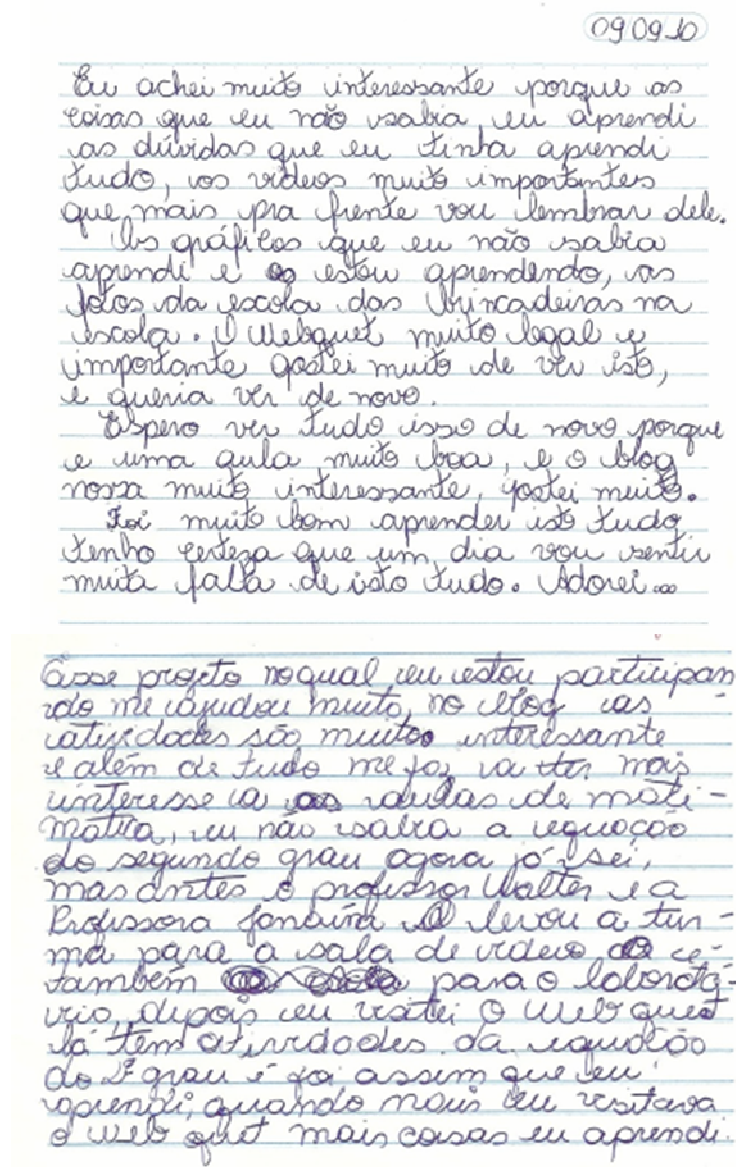 09.09.10
Eu achei muito interessante porque as
coisas que eu não sabia, eu aprendi
as dúvidas que eu tinha aprendi
tudo, os vídeos muito importantes
que mais pra frente vou lembrar dele.
Os gráficos que eu não sabia
aprendi e estou aprendendo, as
fotos da escola das brincadeiras na
escola. O Webquet muito legal e
importante gostei muito de ver isto,
e queria ver de novo.
Espero ver tudo isso de novo porque
e uma aula muito boa, e o blog
nossa muito interessante, gostei muito.
Foi muito bom aprender isto tudo
tenho certeza que um dia vou sentir
muita falta de isto tudo. Adorei...
Esse projeto no qual eu estou participan
do me ajudou muito, no blog as
atividades são muito interessante
e além de tudo me faz a ter mais
interesse a as aulas de mate-
matica, eu não sabia a equação
do segundo grau agora já sei,
mas antes o professor Walter e a
Professora levou a tur-
ma para a sala de video e
também para o laborató-
rio, depois eu visitei o Web quest
lá tem atividades da equação
do 2º grau e foi assim que eu
aprendi, quando mais eu visitava
o web quet mais coisas eu aprendi.